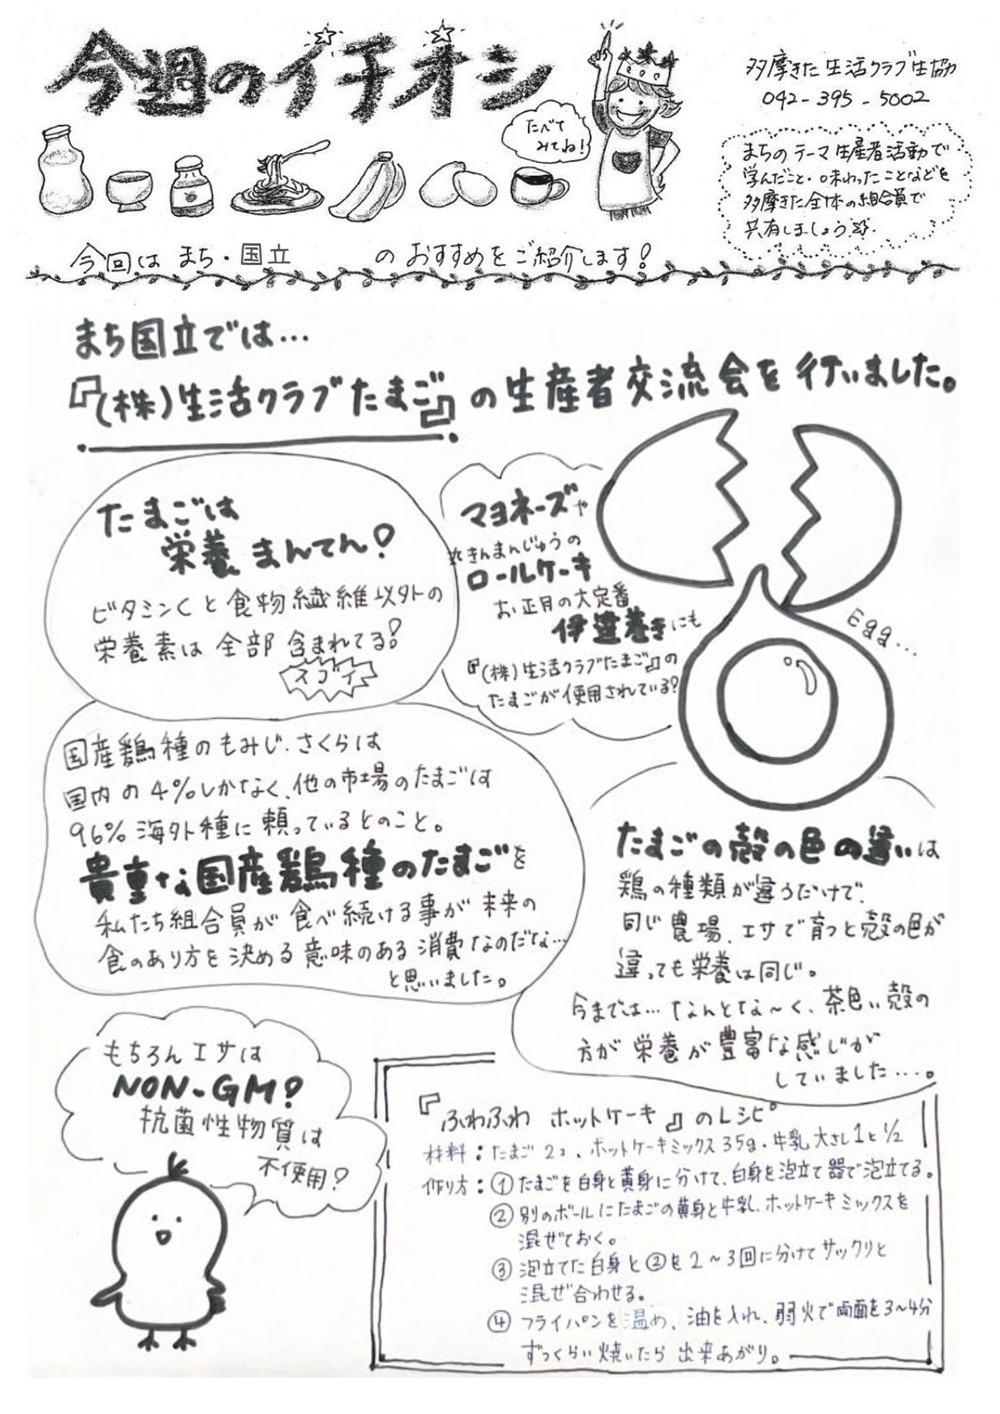 今週のイチオシ
たべて
みてね!
多摩きた生活クラブ生協
042-395-5002
まちのテーマ生産者活動で
学んだこと・味わったことなどを
多摩きた全体の組合員で
共有しましょう
今回は まち・国立 のおすすめをご紹介します!
まち国立では…
『(株)生活クラブたまご』の生産者交流会を行いました。
たまごは
栄養まんてん!
ビタミンCと食物繊維以外の
栄養素は全部含まれてる!
スゴイ
マヨネーズや
きんまんじゅうの
ロールケーキ
お正月の大定番
伊達巻きにも
『(株)生活クラブたまご』の
たまごが使用されている?
Egg...
国産鶏種のもみじ、さくらは
国内の4%しかなく、他の市場のたまごは
96%海外種に頼っているとのこと。
貴重な国産鶏種のたまごを
私たち組合員が食べ続ける事が未来の
食のあり方を決める意味のある消費なのだな…
と思いました。
たまごの殻の色の違いは
鶏の種類が違うだけで、
同じ農場、エサで育つと殻の色が
違っても栄養は同じ。
今までは…なんとな〜く、茶色い殻の
方が栄養が豊富な感じが
していました…。
もちろんエサは
NON-GM!
抗菌性物質は
不使用?
『ふわふわ ホットケーキ』のレシピ
材料:たまご2コ、ホットケーキミックス35g・牛乳大さじ1と1/2
作り方:①たまごを白身と黄身に分けて、白身を泡立て器で泡立てる。
②別のボールにたまごの黄身と牛乳、ホットケーキミックスを
混ぜておく。
③泡立てた白身と②を2〜3回に分けてサックリと
混ぜ合わせる。
④フライパンを温め、油を入れ、弱火で両面を3〜4分
ずつくらい焼いたら出来あがり。